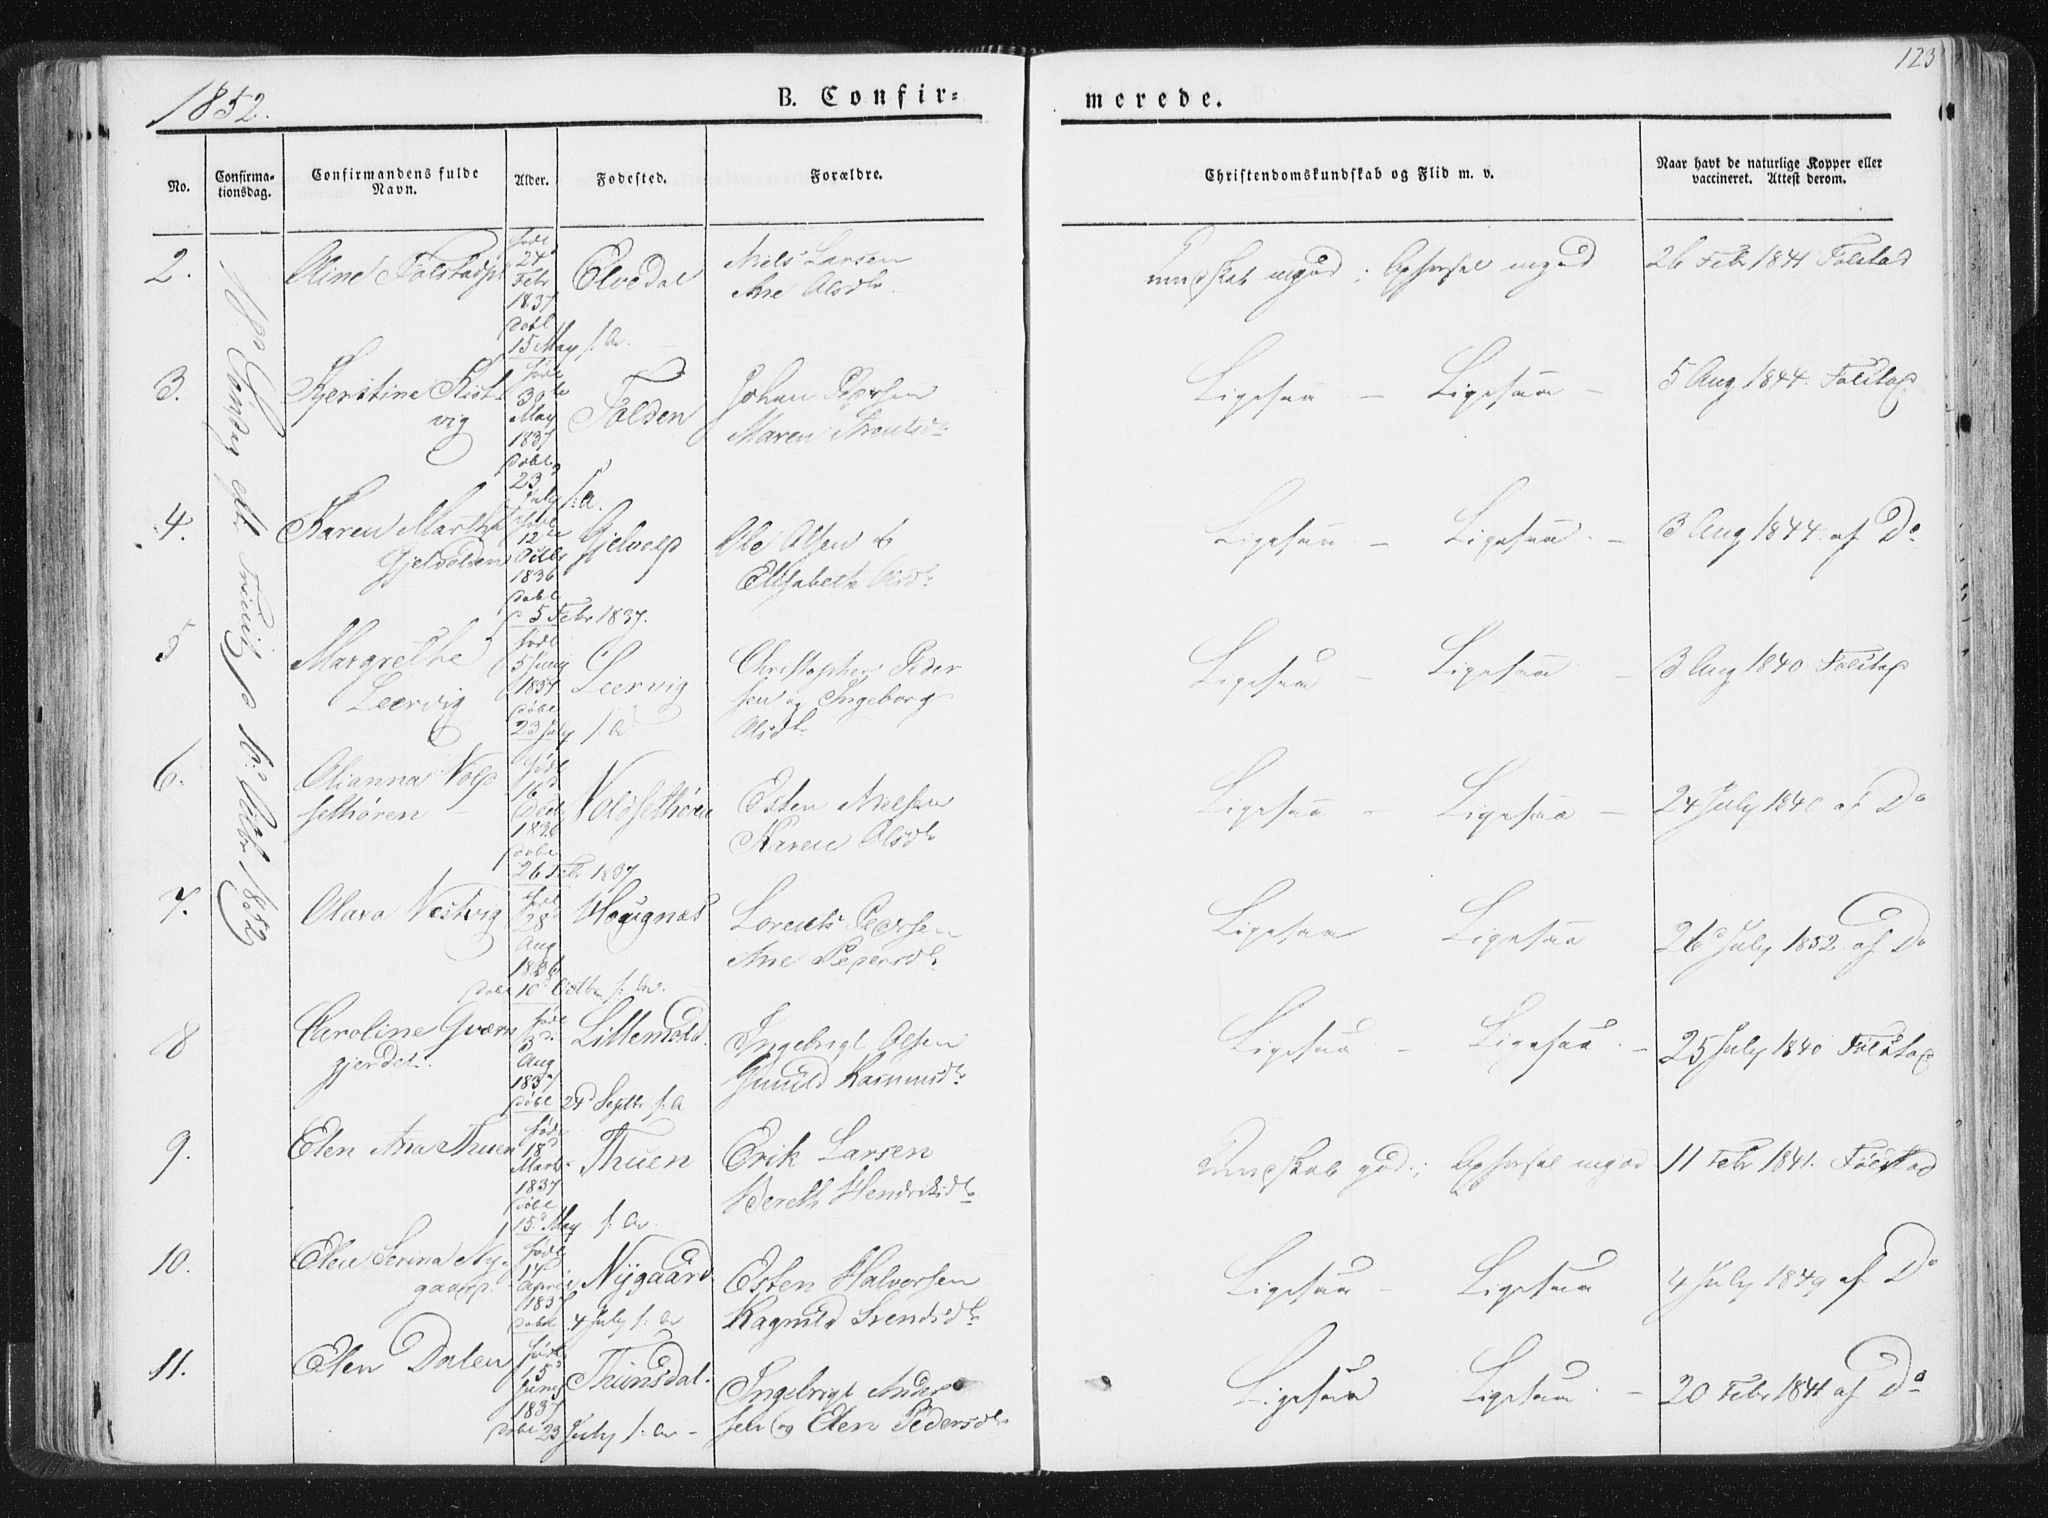 123
1852.
B. Confir=
merede.
No.
Confirma-
tionsdag.
Confirmandens fulde
Navn.
Alder.
Fødested.
Forældre.
Christendomskundskab og Flid m. v.
Naar havt de naturlige Kopper eller
vaccineret. Attest derom.
2.
Oline
født
24
Febr
1837
døbt
15 May f. A.
Elvedal
Niels Larsen
Ane Olsdr.
Kundskab mgod; Opførsel mgod
26 Febr 1841 Følstad
3.
født
30te
May
1837
døbt
23
July f. A.
Folden
Johan Pedersen
Maren
Ligesaa - Ligesaa -
5 Aug 1844. Følstad
4.
Karen Martha
Gjelvolden
født
12te
Octbr
1836
døbt
5 Febr 1837.
Gjelvold
Ole Olsen &
Elisabeth Olsdr.
Ligesaa - Ligesaa. -
3 Aug 1844. af Do
5
Margrethe
Leervig
født
5 Juny
1837
døbt
23 July f. A
Leervig
Christopher Peder
sen og Ingeborg
Olsdr.
Ligesaa - Ligesaa -
3 Aug 1840. Følstad
6.
Olianna Vold
sethøren
født
16d
1836
døbt
26 Febr 1837
Voldsethøren
Esten Nielsen
Karen Olsdr
Ligesaa - Ligesaa
24 July 1840 af Do
7.
Olava Vestvig
født
28
Aug
1836
døbt 10d Octbr f. A.
Hougnæs
Lorents Pedersen
Ane Pedersdr.
Ligesaa Ligesaa
26 July 1852 af Do
8
Caroline Qværn
gjerdet.
født
3d
Aug
1837
døbt 24 Septbr f. A
Littemold
Ingebrigt Olsen
Gunild Rasmusdr
Ligesaa. - Ligesaa. -
25 July 1840 Følstad
9.
Elen Ana Thuen
født
18d
Marts
1837
døbt
15d May f. A.
Thuen
Erik Larsen
Bereth Hendriksdr
Kundskab god.; Opførsel mgod
11 Febr 1841. Følstad
10.
Elen Serina Ny-
gaard.
født
14
April
1837
døbt 4 July f. A
Nygaard
Esten Halvorsen
Ragnild Svendsdr
Ligesaa - Ligesaa
4 July 1849 af Do
11.
Elen Dalen
født
15d
Juny
1837
døbt 23 July f. A -
Thunsdal.
Ingebrigt Ander
sen og Elen Pedersdr
Ligesaa Ligesaa. -
20 Febr 1841 af Do
18de Søndag eft. Trinit. d 10d Octbr 1852